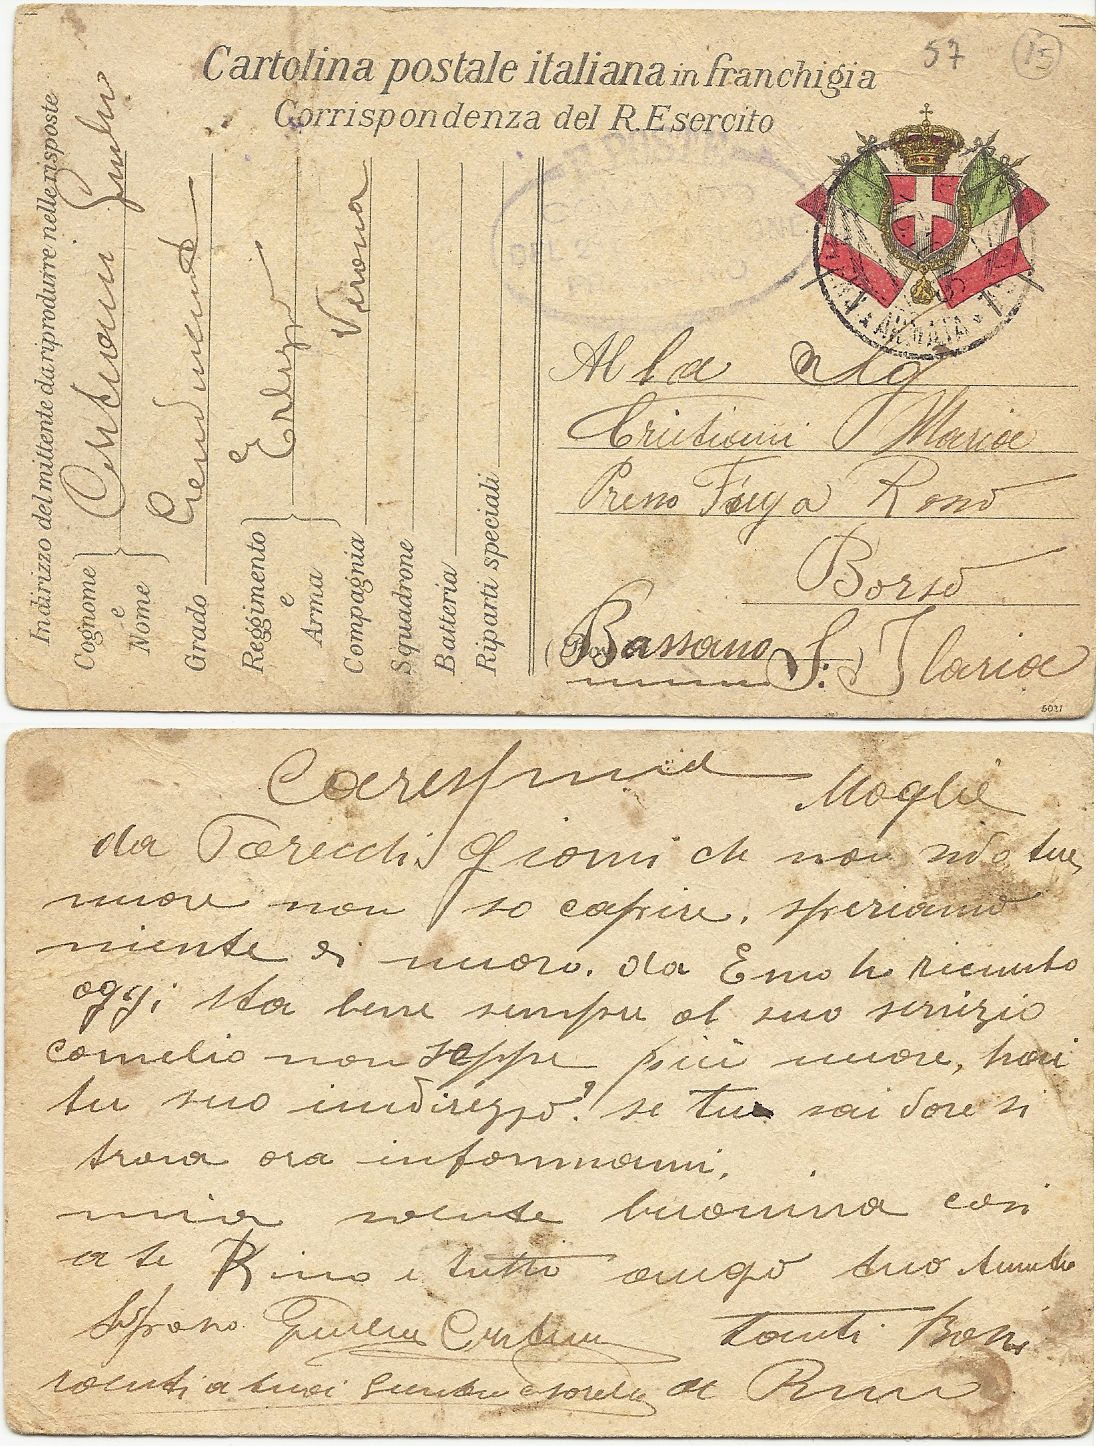 57 15
Cartolina postale italiana in franchigia
Corrispondenza del R. Esercito
Indirizzo del mittente da riprodurre nelle risposte
Cognome e Nome
Grado
Reggimento e Arma
Compagnia Verona
Squadrone
Batteria
Riparti speciali
R. POSTE
COMANDO
Alla Sig
Cristiani Maria
Preso Fuga
Borso
Bassano S. Ilaria
5031
Moglie
da Parecchi giorni che non
nuove non so capire. speriamo
niente di nuovo. da Emo ho ricevuto
oggi sta bene sempre al suo servizio
cornelio non seppe più nuove, hai
tu suo indirizzo? se tu sai dove si
trova ora informami.
mia salute buonina così
a te Rino e tutti augo tuo
Sposo tanti Baci
saluti a tuoi